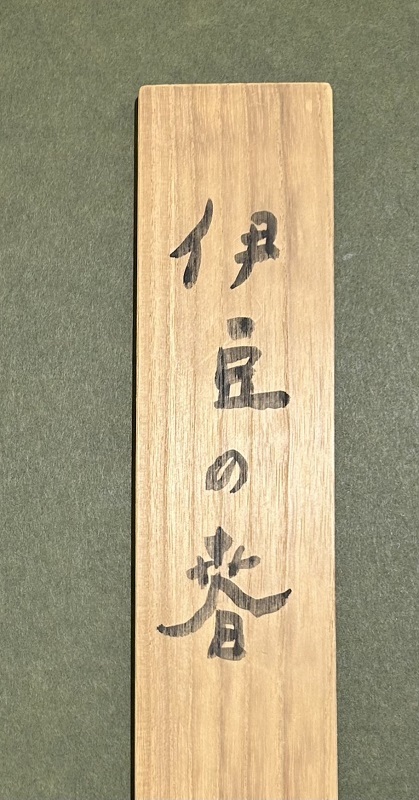 伊豆の春